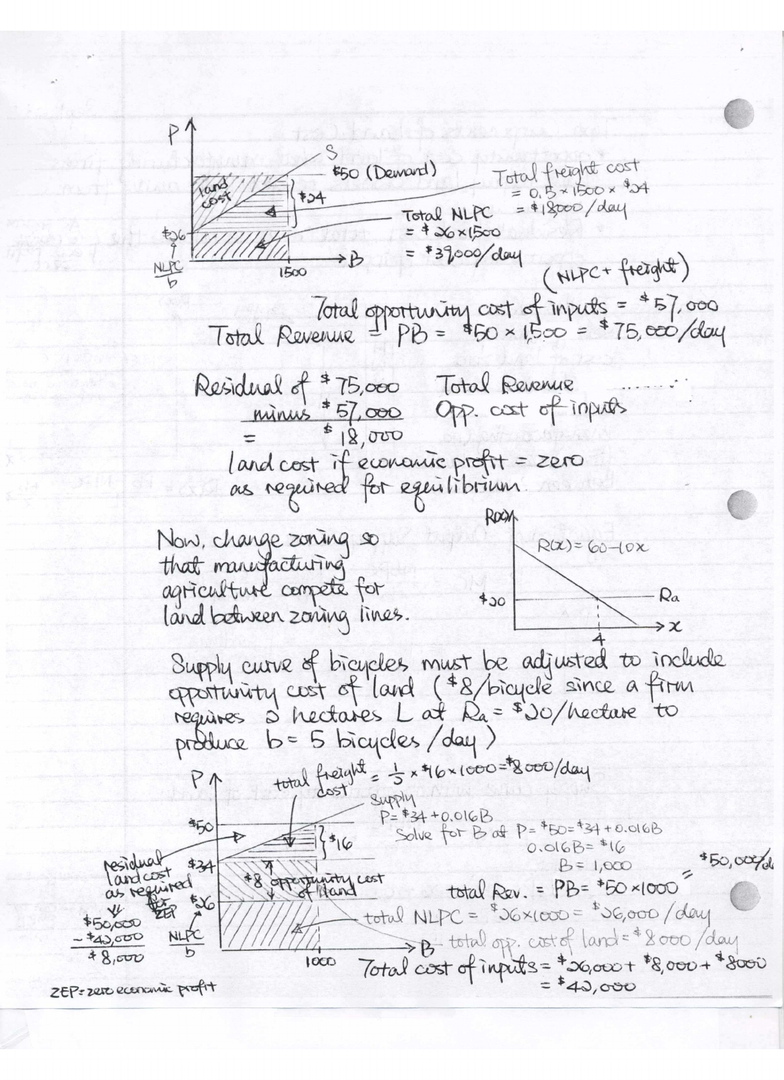 P
S
$50 (Demand)
land
cost
} $24
Total freight cost
= 0.5 × 1500 × $24
= $18,000 / day
$26
NLPC
b
Total NLPC
= $26 × 1,500
= $39,000 / day
1500
B
(NLPC + freight)
Total opportunity cost of inputs = $57,000
Total Revenue = PB = $50 × 1,500 = $75,000 / day
Residual of $75,000 Total Revenue
minus $57,000 Opp. cost of inputs
= $18,000
land cost if economic profit = zero
as required for equilibrium.
Now, change zoning so
that manufacturing
agriculture compete for
land between zoning lines.
R(x)
R(x) = 60-10x
$20
Ra
4
x
Supply curve of bicycles must be adjusted to include
opportunity cost of land ($8/bicycle since a firm
requires 2 hectares L at Ra = $20/hectare to
produce b = 5 bicycles / day)
P
total freight = ½ × $16 × 1000 = $8000/day
cost
Supply
P = $34 + 0.016B
Solve for B at P = $50 = $34 + 0.016B
0.016B = $16
B = 1,000
$50
} $16
$34
residual
land cost
as required
for
ZEP
$50,000
- $42,000
$8,000
$8 opportunity cost
of land
$26
NLPC
b
total Rev. = PB = $50 × 1000 = $50,000/d
total NLPC = $26 × 1000 = $26,000 / day
total opp. cost of land = $8000 / day
1000
B
Total cost of inputs = $26,000 + $8,000 + $8000
= $42,000
ZEP = zero economic profit